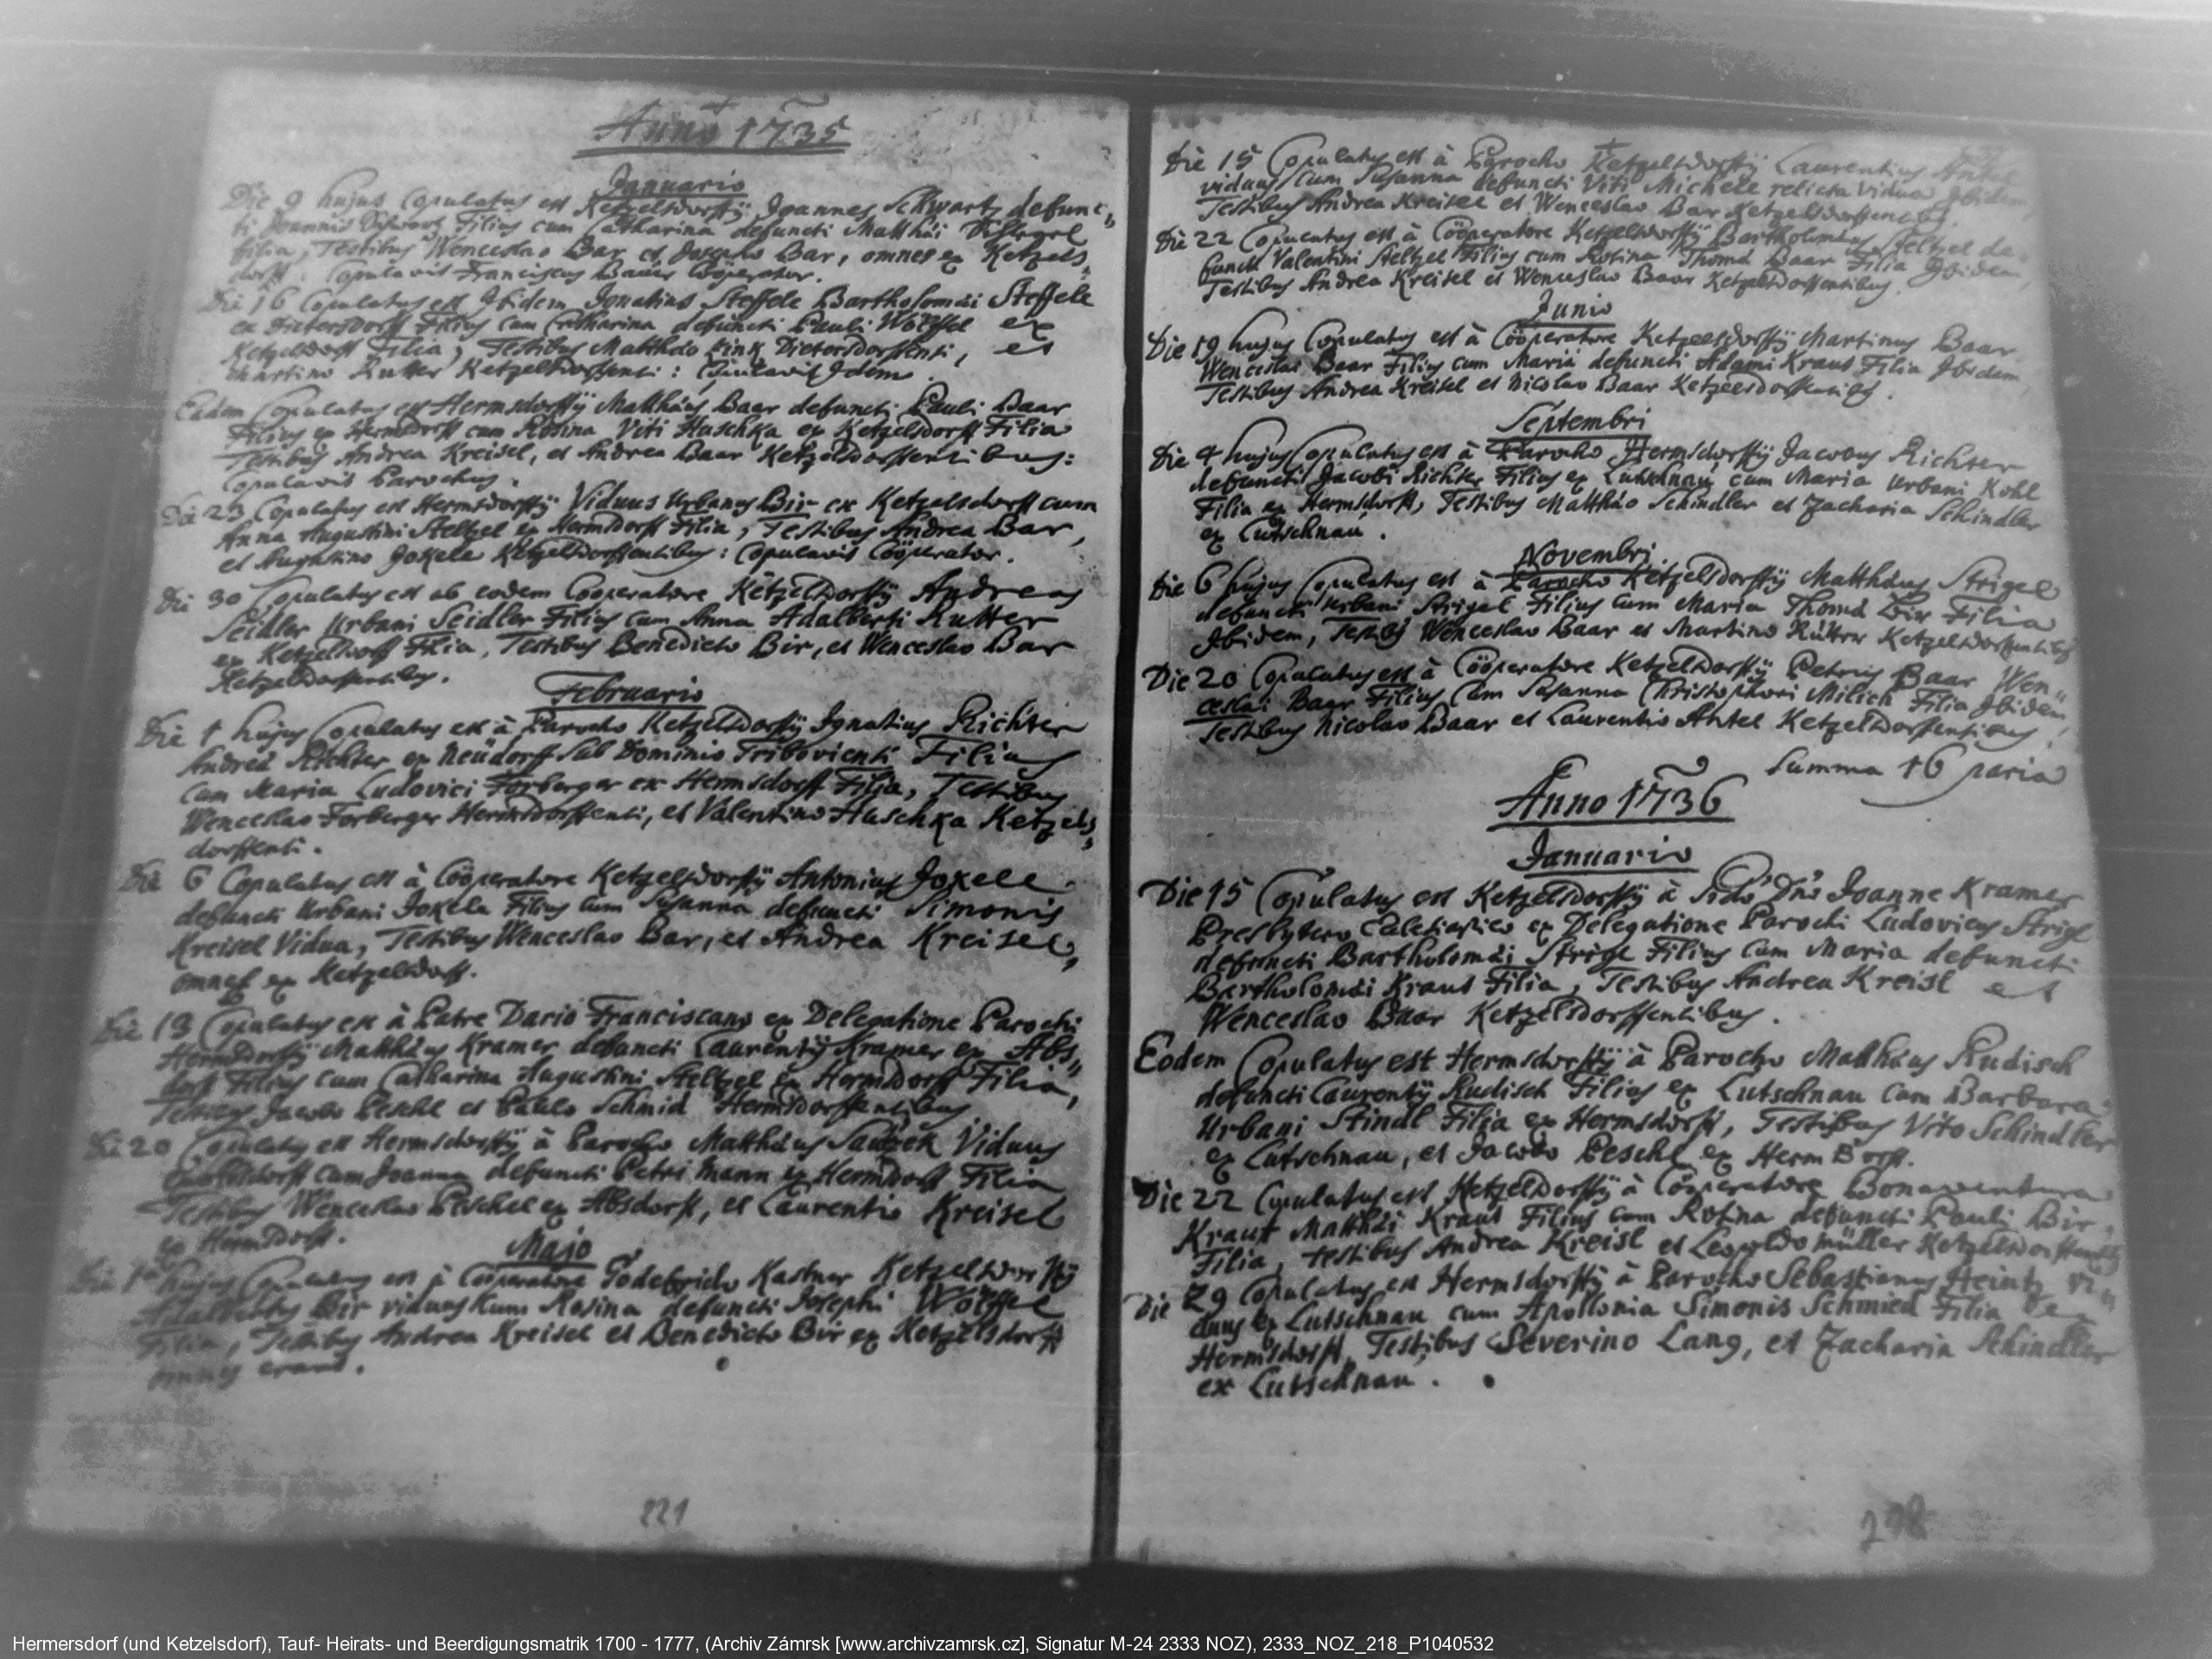 Anno 1735
Januario
Die 9 hujus Copulatus est Ketzelsdorffÿ Joannes Schwartz defunc„
ti Joannis Schwartz Filius cum Catharina defuncti Matthäi Schlegel
filia, Testibus Wenceslao Bar et Josepho Bar, omnes ex Ketzels„
dorff. Copulavit Franciscus Bauer Cöoperator.
Die 16 Copulatus est Ibidem Ignatius Steffele Bartholomäi Steffele
ex Dietersdorff Filius cum Catharina defuncti Pauli Wölffel ex
Ketzelsdorff Filia, Testibus Matthäo Fink Dietersdorffenti, et
Martino Rutter Ketzelsdorffenti: Copulavit Idem.
Eadem Copulatus est Hermsdorffÿ Matthäus Baar defuncti Pauli Baar
Filius ex Hermsdorff cum Rosina Viti Huschka ex Ketzelsdorff Filia
Testibus Andrea Kreisel, et Andrea Baar Ketzelsdorffentibus:
Copulavit Parochus.
Die 23 Copulatus est Hermsdorffÿ Viduus Urbanus Bir ex Ketzelsdorff cum
Anna Augustini Steltzel ex Hermsdorff Filia, Testibus Andrea Bar,
et Augustino Jokele Ketzelsdorffentibus: Copulavit Cöoperator.
Die 30 Copulatus est ab eodem Cooperatore Ketzelsdorffÿ Andreas
Seidler Urbani Seidler Filius cum Anna Adalberti Rutter
ex Ketzelsdorff Filia, Testibus Benedicto Bir, et Wenceslao Bar
Ketzelsdorffentibus.
Februario
Die 1 hujus Copulatus est à Parocho Ketzelsdorffÿ Ignatius Richter
Andreä Richter ex Neüdorff sub Dominio Tribovienti Filius
cum Maria Ludovici Forberger ex Hermsdorff Filia, Testibus
Wenceslao Forberger Hermsdorffenti, et Valentino Huschka Ketzels„
dorffenti.
Die 6 Copulatus est à Cöoperatore Ketzelsdorffÿ Antonius Jokele
defuncti Urbani Jokele Filius cum Susanna defuncti Simonis
Kreisel Vidua, Testibus Wenceslao Bar, et Andrea Kreisel,
omnes ex Ketzelsdorff.
Die 13 Copulatus est à Patre Dario Franciscano ex Delegatione Parochi
Hermsdorffÿ Matthäus Kramer defuncti Laurentÿ Kramer ex Abs„
dorff Filius cum Catharina Augustini Steltzel ex Hermsdorff Filia,
Testibus Jacobo Peschl et Paulo Schmid Hermsdorffentibus
Die 20 Copulatus est Hermsdorffÿ à Parocho Matthäus Viduus
cum Joanna defuncti Petri Mann ex Hermsdorff Filia
Testibus Wenceslao Peschel ex Absdorff, et Laurentio Kreisel
ex Hermsdorff.
Majo
Die hujus Copulatus est à Cooperatore Godefrido Kastner Ketzelsdorffÿ
Adalbertus Bir viduus cum Rosina defuncti Josephi Wölffel
Filia, Testibus Andrea Kreisel et Benedicto Bir ex Ketzelsdorff
omnes erant.
221
Die 15 Copulatus est à Parocho Ketzelsdorffÿ Laurentius Antel
viduus cum Susanna defuncti Viti Michele relicta vidua Ibidem,
Testibus Andrea Kreisel et Wenceslao Bar Ketzelsdorffentibus.
Die 22 Copulatus est à Cöoperatore Ketzelsdorffÿ Bartholomäus Steltzel de„
functi Valentini Steltzel Filius cum Rosina Thomä Baar Filia Ibidem,
Testibus Andrea Kreisel et Wenceslao Baar Ketzelsdorffentibus.
Junio
Die 19 hujus Copulatus est à Cöoperatore Ketzelsdorffÿ Martinus Baar
Wenceslai Baar Filius cum Maria defuncti Adami Kraus Filia Ibidem
Testibus Andrea Kreisel et Nicolao Baar Ketzelsdorffentibus.
Septembri
Die 4 hujus Copulatus est à Parocho Hermsdorffÿ Jacobus Richter
defuncti Jacobi Richter Filius ex Lutschnau cum Maria Urbani Kohl
Filia ex Hermsdorff, Testibus Matthäo Schindler et Zacharia Schindler
ex Lutschnau.
Novembri
Die 6 hujus Copulatus est à Parocho Ketzelsdorffÿ Matthäus Strigel
defuncti Urbani Strigel Filius cum Maria Thomä Bir Filia
Ibidem, Testibus Wenceslao Baar et Martino Rütter Ketzelsdorffentibus
Die 20 Copulatus est à Cöoperatore Ketzelsdorffÿ Petrus Baar Wen„
ceslai Baar Filius cum Susanna Christophori Milich Filia Ibidem
Testibus Nicolao Baar et Laurentio Antel Ketzelsdorffentibus.
Summa 16 paria
Anno 1736
Januario
Die 15 Copulatus est Ketzelsdorffÿ à Dno Joanne Kramer
Presbytero ex Delegatione Parochi Ludovicus Strigl
defuncti Bartholomäi Strigl Filius cum Maria defuncti
Bartholomäi Kraus Filia, Testibus Andrea Kreisl et
Wenceslao Baar Ketzelsdorffentibus.
Eodem Copulatus est Hermsdorffÿ à Parocho Matthäus Rudisch
defuncti Laurentÿ Rudisch Filius ex Lutschnau cum Barbara
Urbani Stindl Filia ex Hermsdorff, Testibus Vito Schindler
ex Lutschnau, et Jacobo Peschl ex Hermsdorff.
Die 22 Copulatus est Ketzelsdorffÿ à Cöoperatore Bonaventura
Kraus Matthäi Kraus Filius cum Rosina defuncti Pauli Bir,
Filia, testibus Andrea Kreisl et Leopoldo Müller Ketzelsdorffentibus
Die 29 Copulatus est Hermsdorffÿ à Parocho Sebastianus Heintz Vi„
duus ex Lutschnau cum Apollonia Simonis Schmied Filia ex
Hermsdorff, Testibus Severino Lang, et Zacharia Schindler
ex Lutschnau.
298
Hermersdorf (und Ketzelsdorf), Tauf- Heirats- und Beerdigungsmatrik 1700 - 1777, (Archiv Zámrsk [www.archivzamrsk.cz], Signatur M-24 2333 NOZ), 2333_NOZ_218_P1040532